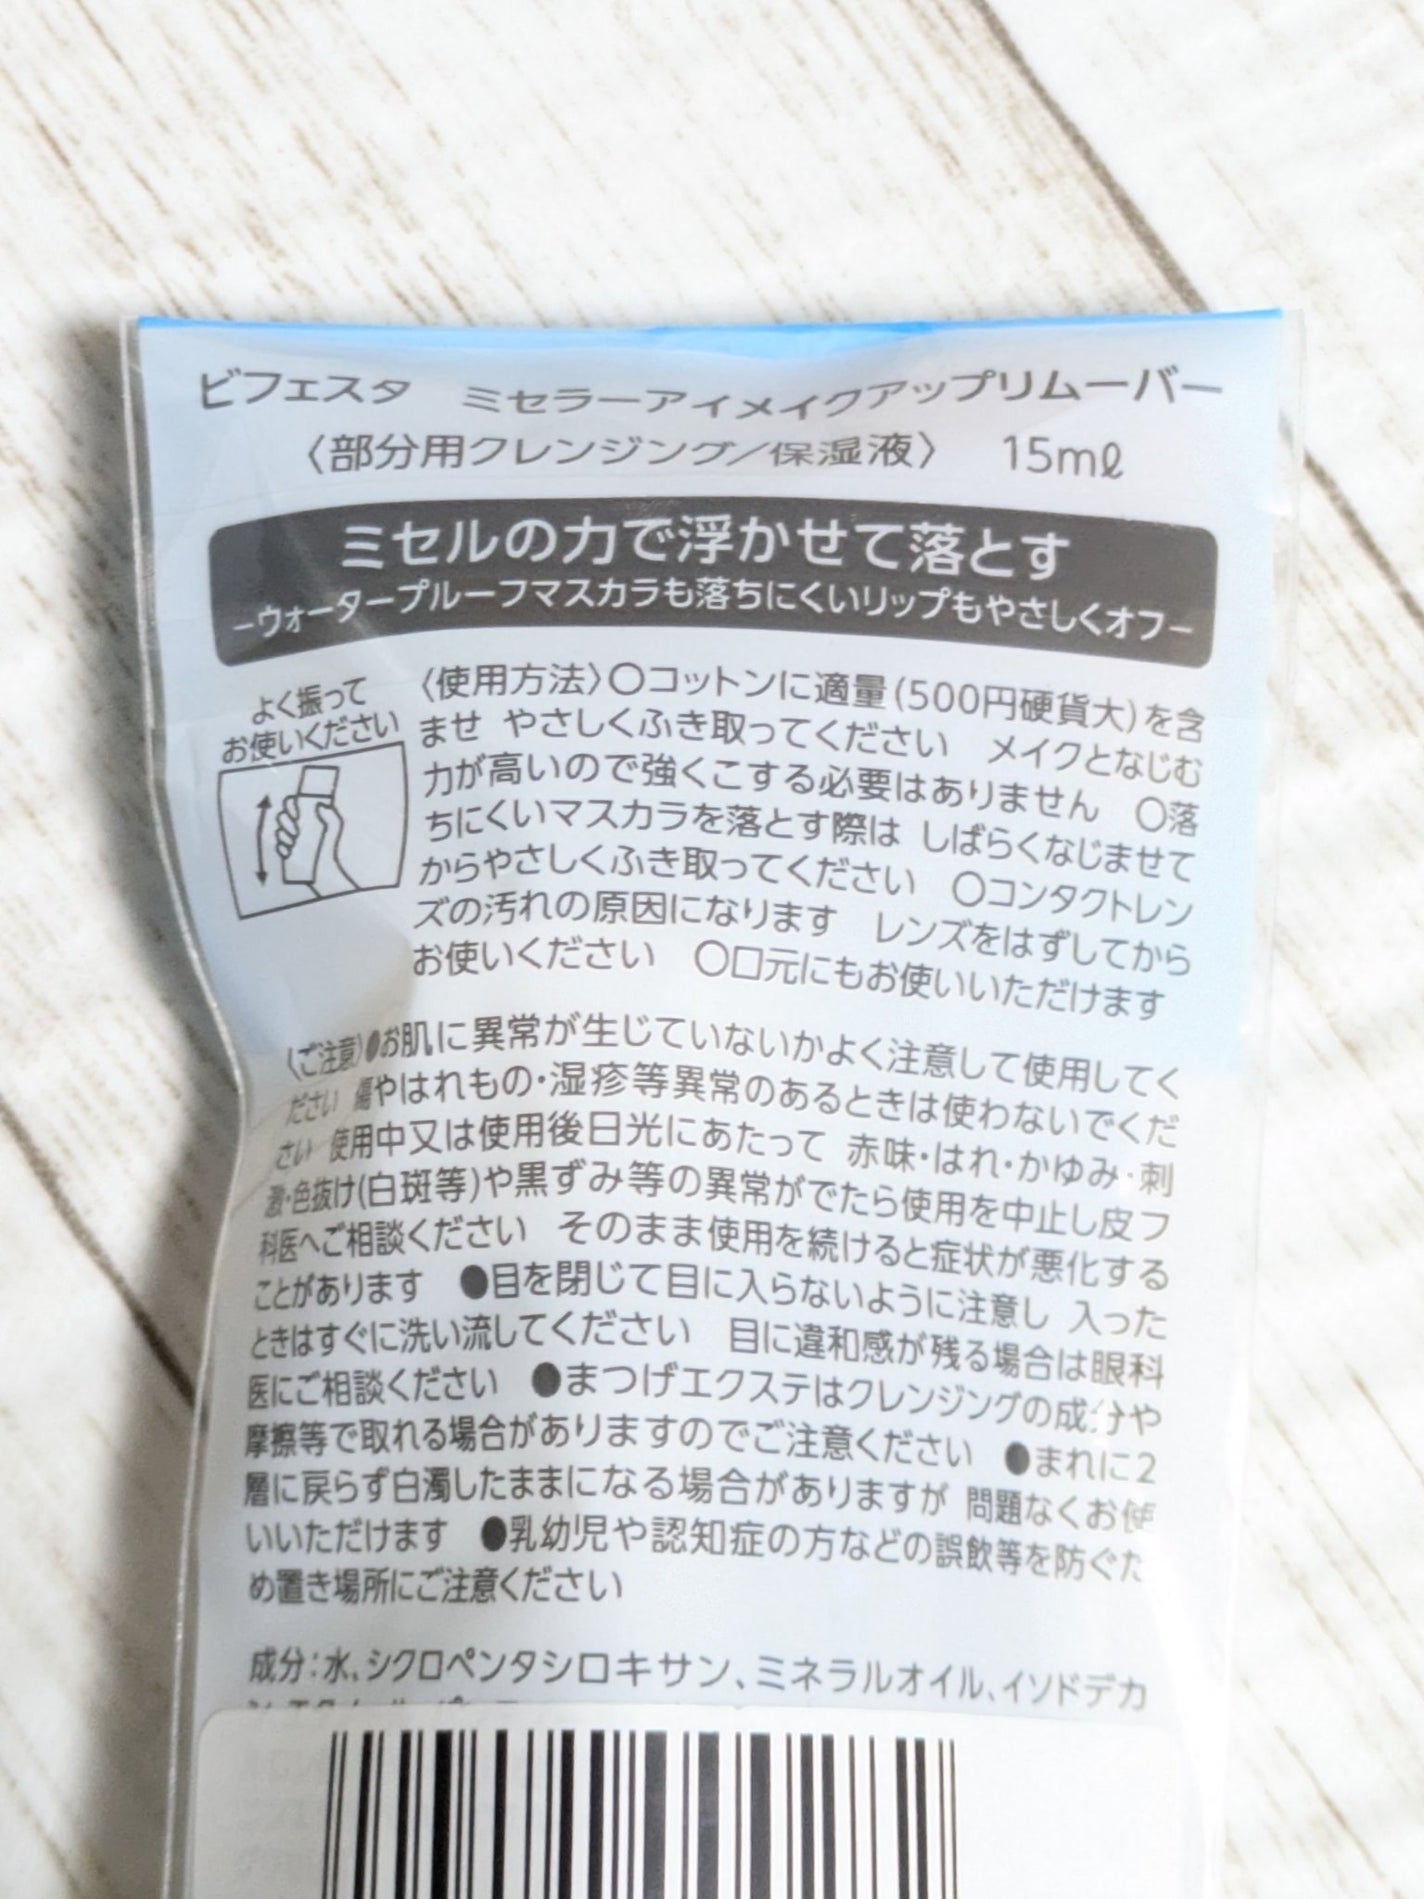 ビフェスタ ミセラーアイメイクアップリムーバー
〈部分用クレンジング/保湿液〉 15mℓ
ミセルの力で浮かせて落とす
−ウォータープルーフマスカラも落ちにくいリップもやさしくオフ−
よく振って
お使いください
〈使用方法〉○コットンに適量(500円硬貨大)を含
ませ やさしくふき取ってください メイクとなじむ
力が高いので強くこする必要はありません ○落
ちにくいマスカラを落とす際は しばらくなじませて
からやさしくふき取ってください ○コンタクトレン
ズの汚れの原因になります レンズをはずしてから
お使いください ○口元にもお使いいただけます
〈ご注意〉●お肌に異常が生じていないかよく注意して使用してく
ださい 傷やはれもの・湿疹等異常のあるときは使わないでくだ
さい 使用中又は使用後日光にあたって 赤味・はれ・かゆみ・刺
激・色抜け(白斑等)や黒ずみ等の異常がでたら使用を中止し皮フ
科医へご相談ください そのまま使用を続けると症状が悪化する
ことがあります ●目を閉じて目に入らないように注意し 入った
ときはすぐに洗い流してください 目に違和感が残る場合は眼科
医にご相談ください ●まつげエクステはクレンジングの成分や
摩擦等で取れる場合がありますのでご注意ください ●まれに2
層に戻らず白濁したままになる場合がありますが 問題なくお使
いいただけます ●乳幼児や認知症の方などの誤飲等を防ぐた
め置き場所にご注意ください
成分:水、シクロペンタシロキサン、ミネラルオイル、イソドデカ